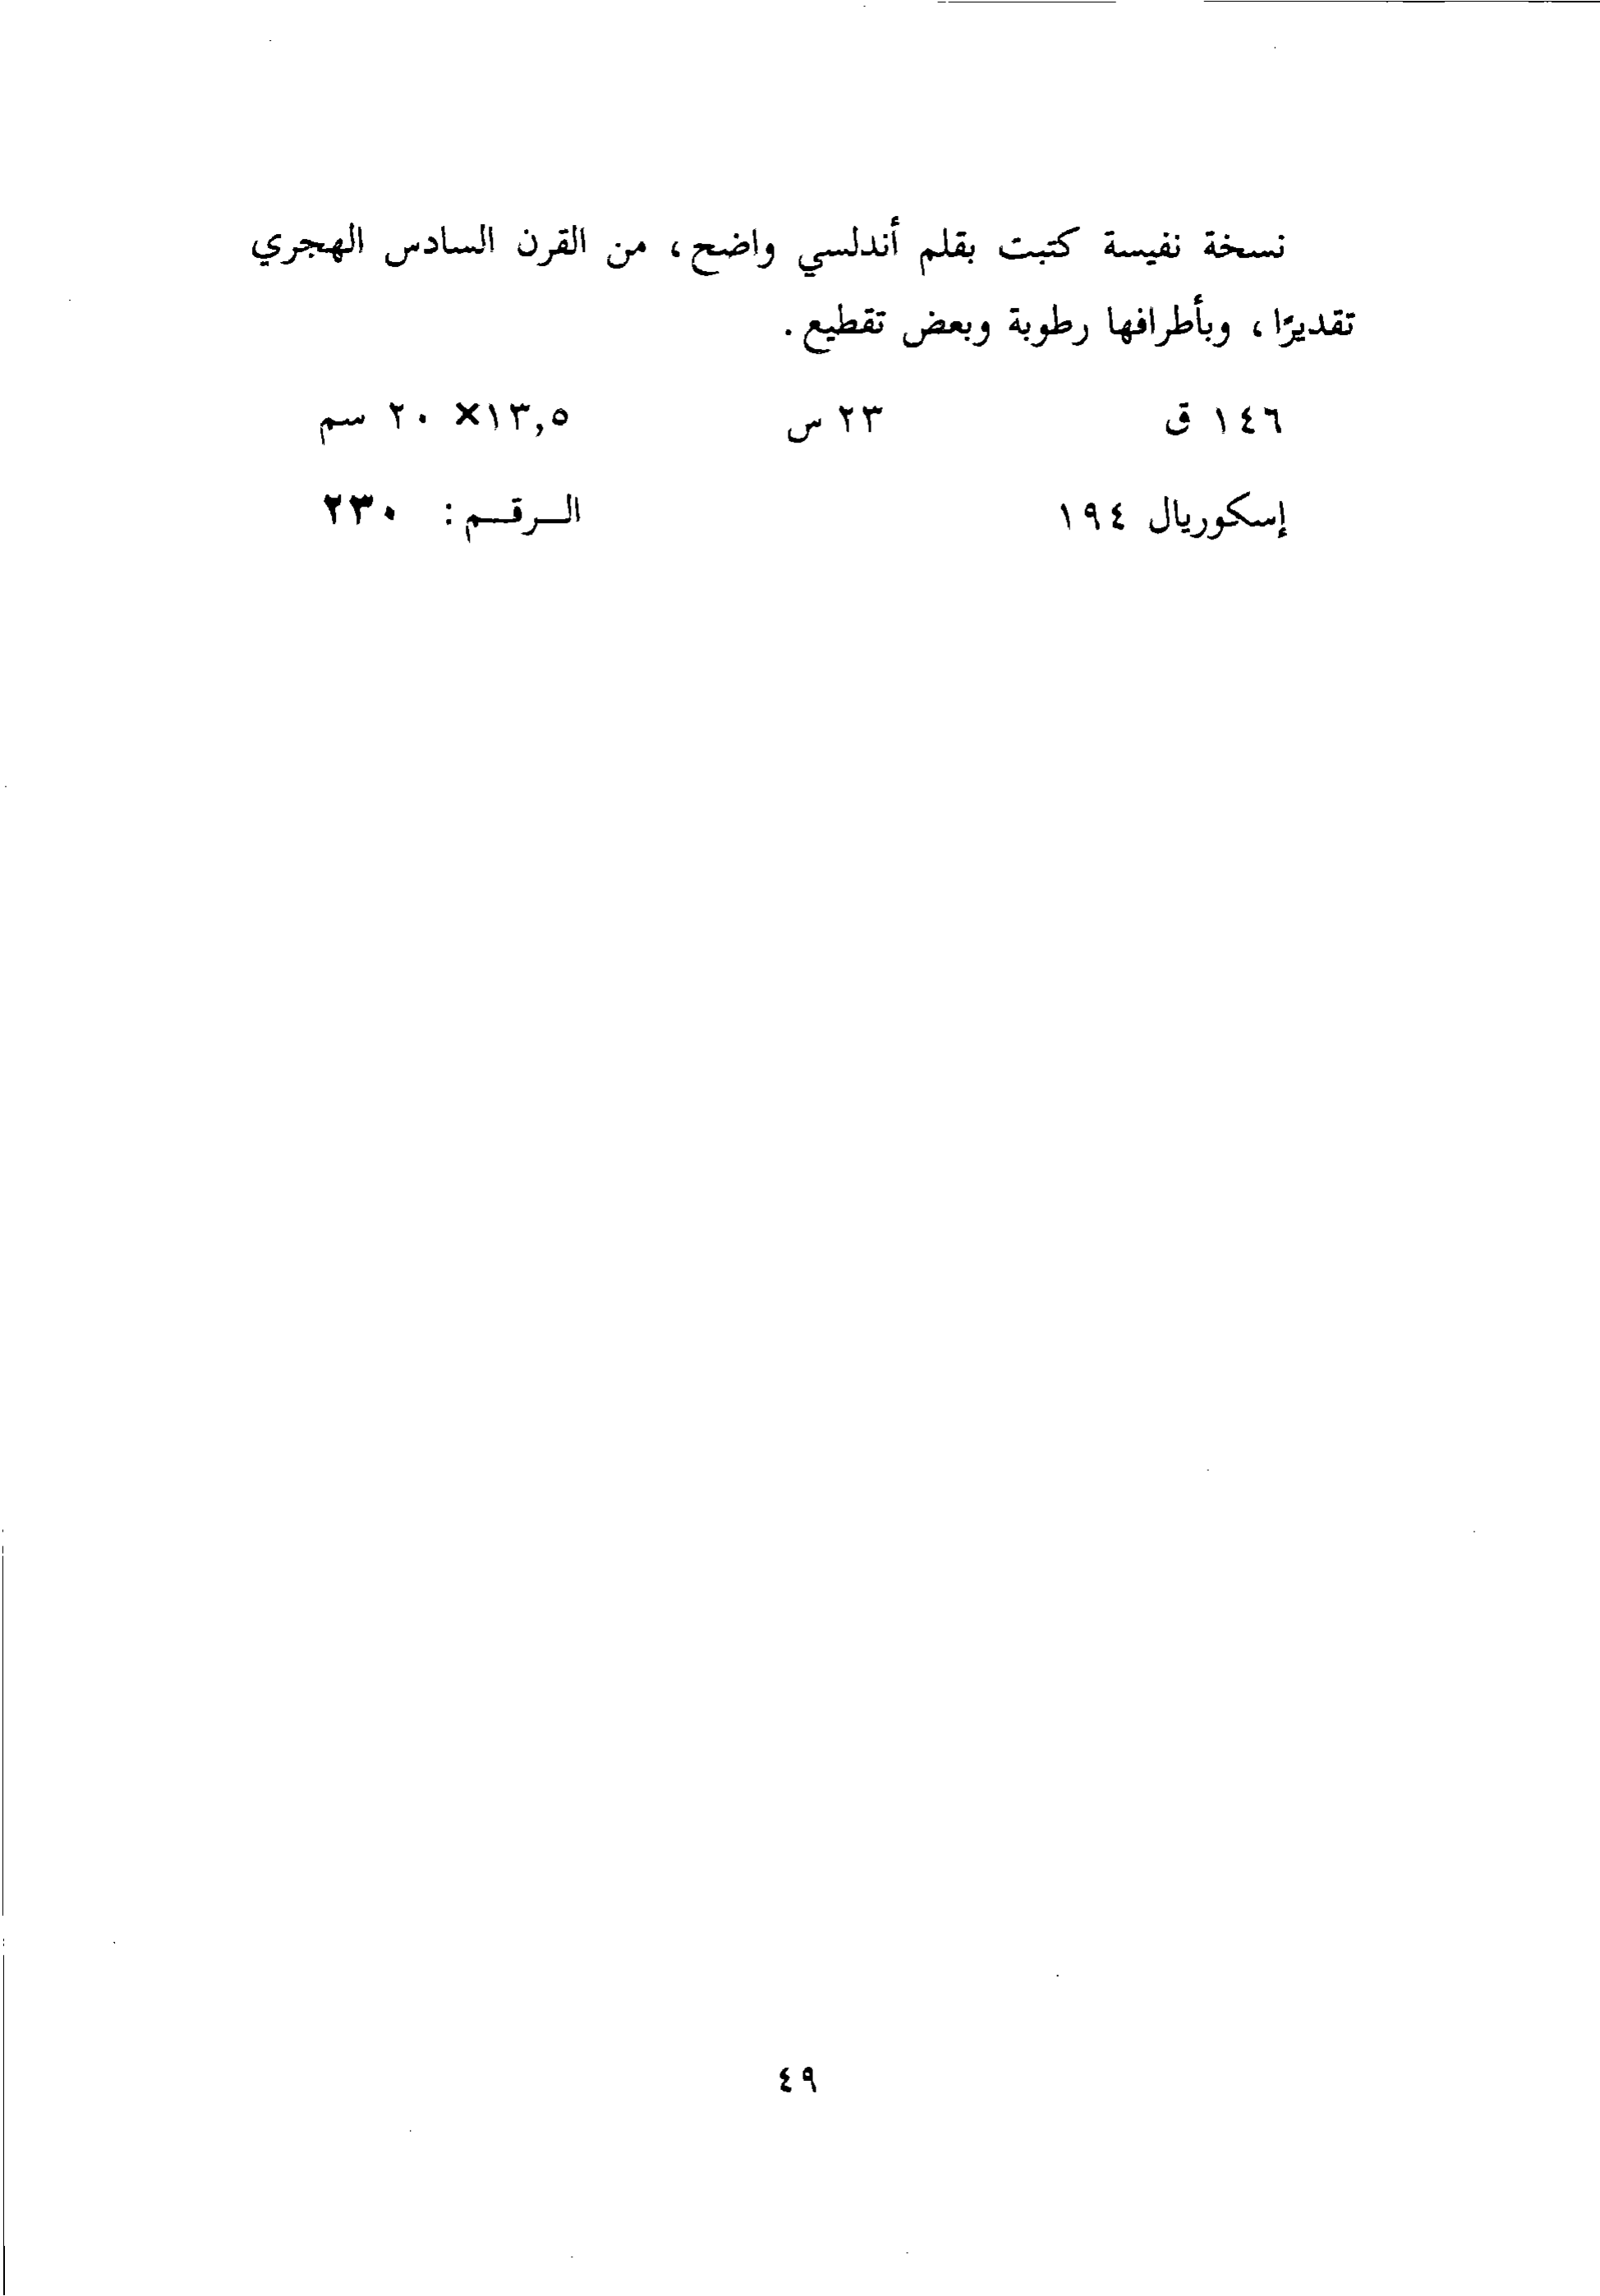 نسخة نفيسة كتبت بقلم أندلسي واضح، من القرن السادس الهجري
تقديرًا، وبأطرافها رطوبة وبعض تقطيع.
١٤٦ ق ٢٣ س ١٣,٥× ٢٠ سم
إسكوريال ١٩٤ الــرقــم: ٢٣٠
٤٩